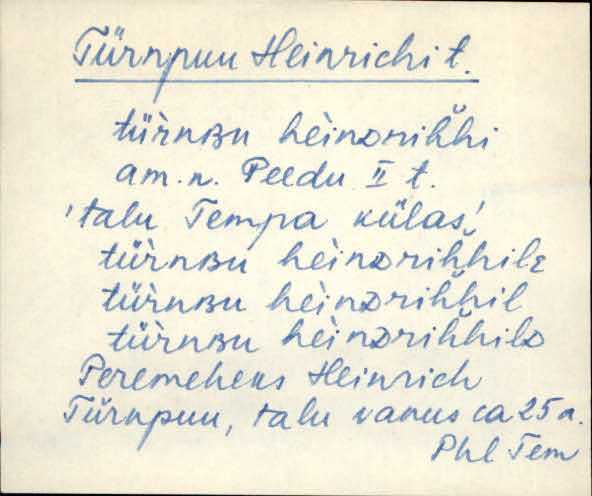 Türnpuu Heinrichi t.
tüìrnʙu hèinᴅrih̆hi
am. n. Peedu II t.
'talu Tempa külas'
tüìrnʙu hèinᴅrih̆hilᴇ
tüìrnʙu hèinᴅrih̆hil
tüìrnʙu hèinᴅrih̆hilᴅ
Peremeheks Heinrich
Türnpuu, talu vanus ca 25 a.
Phl Tem